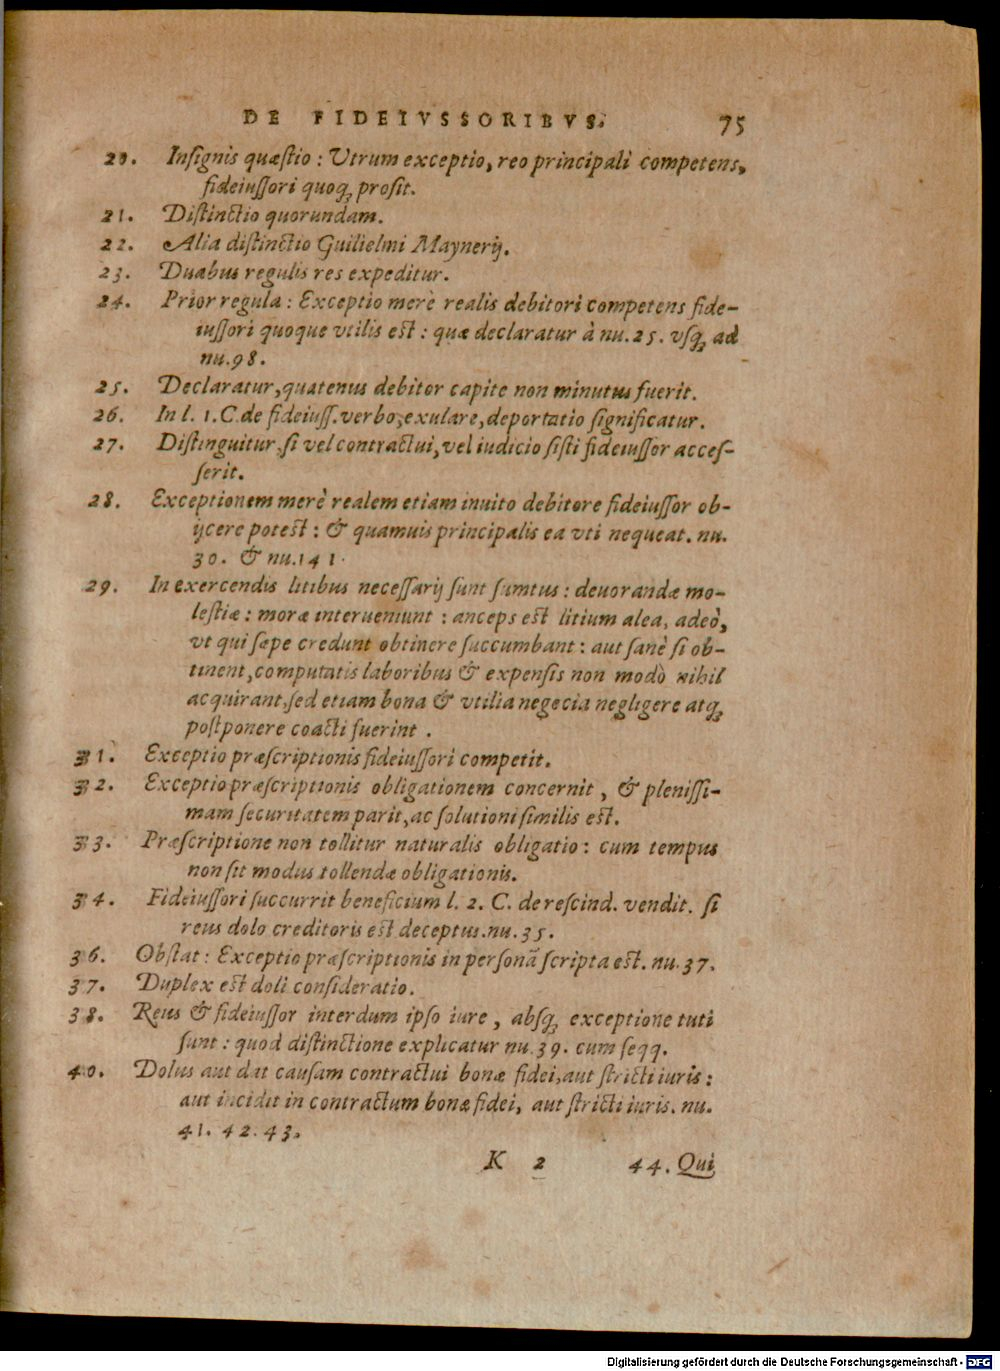 DE FIDEIVSSORIBVS. 75
20. Insignis quæstio : Vtrum exceptio, reo principali competens,
fideiussori quoq; prosit.
21. Distinctio quorundam.
22. Alia distinctio Guilielmi Maynerij.
23. Duabus regulis res expeditur.
24. Prior regula : Exceptio merè realis debitori competens fide-
iussori quoque vtilis est : quæ declaratur à nu. 25. vsq; ad
nu. 98.
25. Declaratur, quatenus debitor capite non minutus fuerit.
26. In l. 1. C. de fideiuss. verbo, exulare, deportatio significatur.
27. Distinguitur, si vel contractui, vel iudicio sisti fideiussor acces-
serit.
28. Exceptionem merè realem etiam inuito debitore fideiussor ob-
ijcere potest : & quamuis principalis ea vti nequeat. nu.
30. & nu. 141.
29. In exercendis litibus necessarij sunt sumtus : deuorandæ mo-
lestiæ : moræ interueniunt : anceps est litium alea, adeò,
vt qui sæpe credunt obtinere succumbant : aut sanè si ob-
tinent, computatis laboribus & expensis non modò nihil
acquirant, sed etiam bona & vtilia negecia negligere atq;
postponere coacti fuerint .
31. Exceptio præscriptionis fideiussori competit.
32. Exceptio præscriptionis obligationem concernit , & plenissi-
mam securitatem parit, ac solutioni similis est.
33. Præscriptione non tollitur naturalis obligatio : cum tempus
non sit modus tollendæ obligationis.
34. Fideiussori succurrit beneficium l. 2. C. de rescind. vendit. si
reus dolo creditoris est deceptus. nu. 35.
36. Obstat : Exceptio præscriptionis in personã scripta est. nu. 37.
37. Duplex est doli consideratio.
38. Reus & fideiussor interdum ipso iure , absq; exceptione tuti
sunt : quod distinctione explicatur nu. 39. cum seqq.
40. Dolus aut dat causam contractui bonæ fidei, aut stricti iuris :
aut incidit in contractum bonæ fidei, aut stricti iuris. nu.
41. 42. 43.
K 2 44. Qui
Digitalisierung gefördert durch die Deutsche Forschungsgemeinschaft - DFG